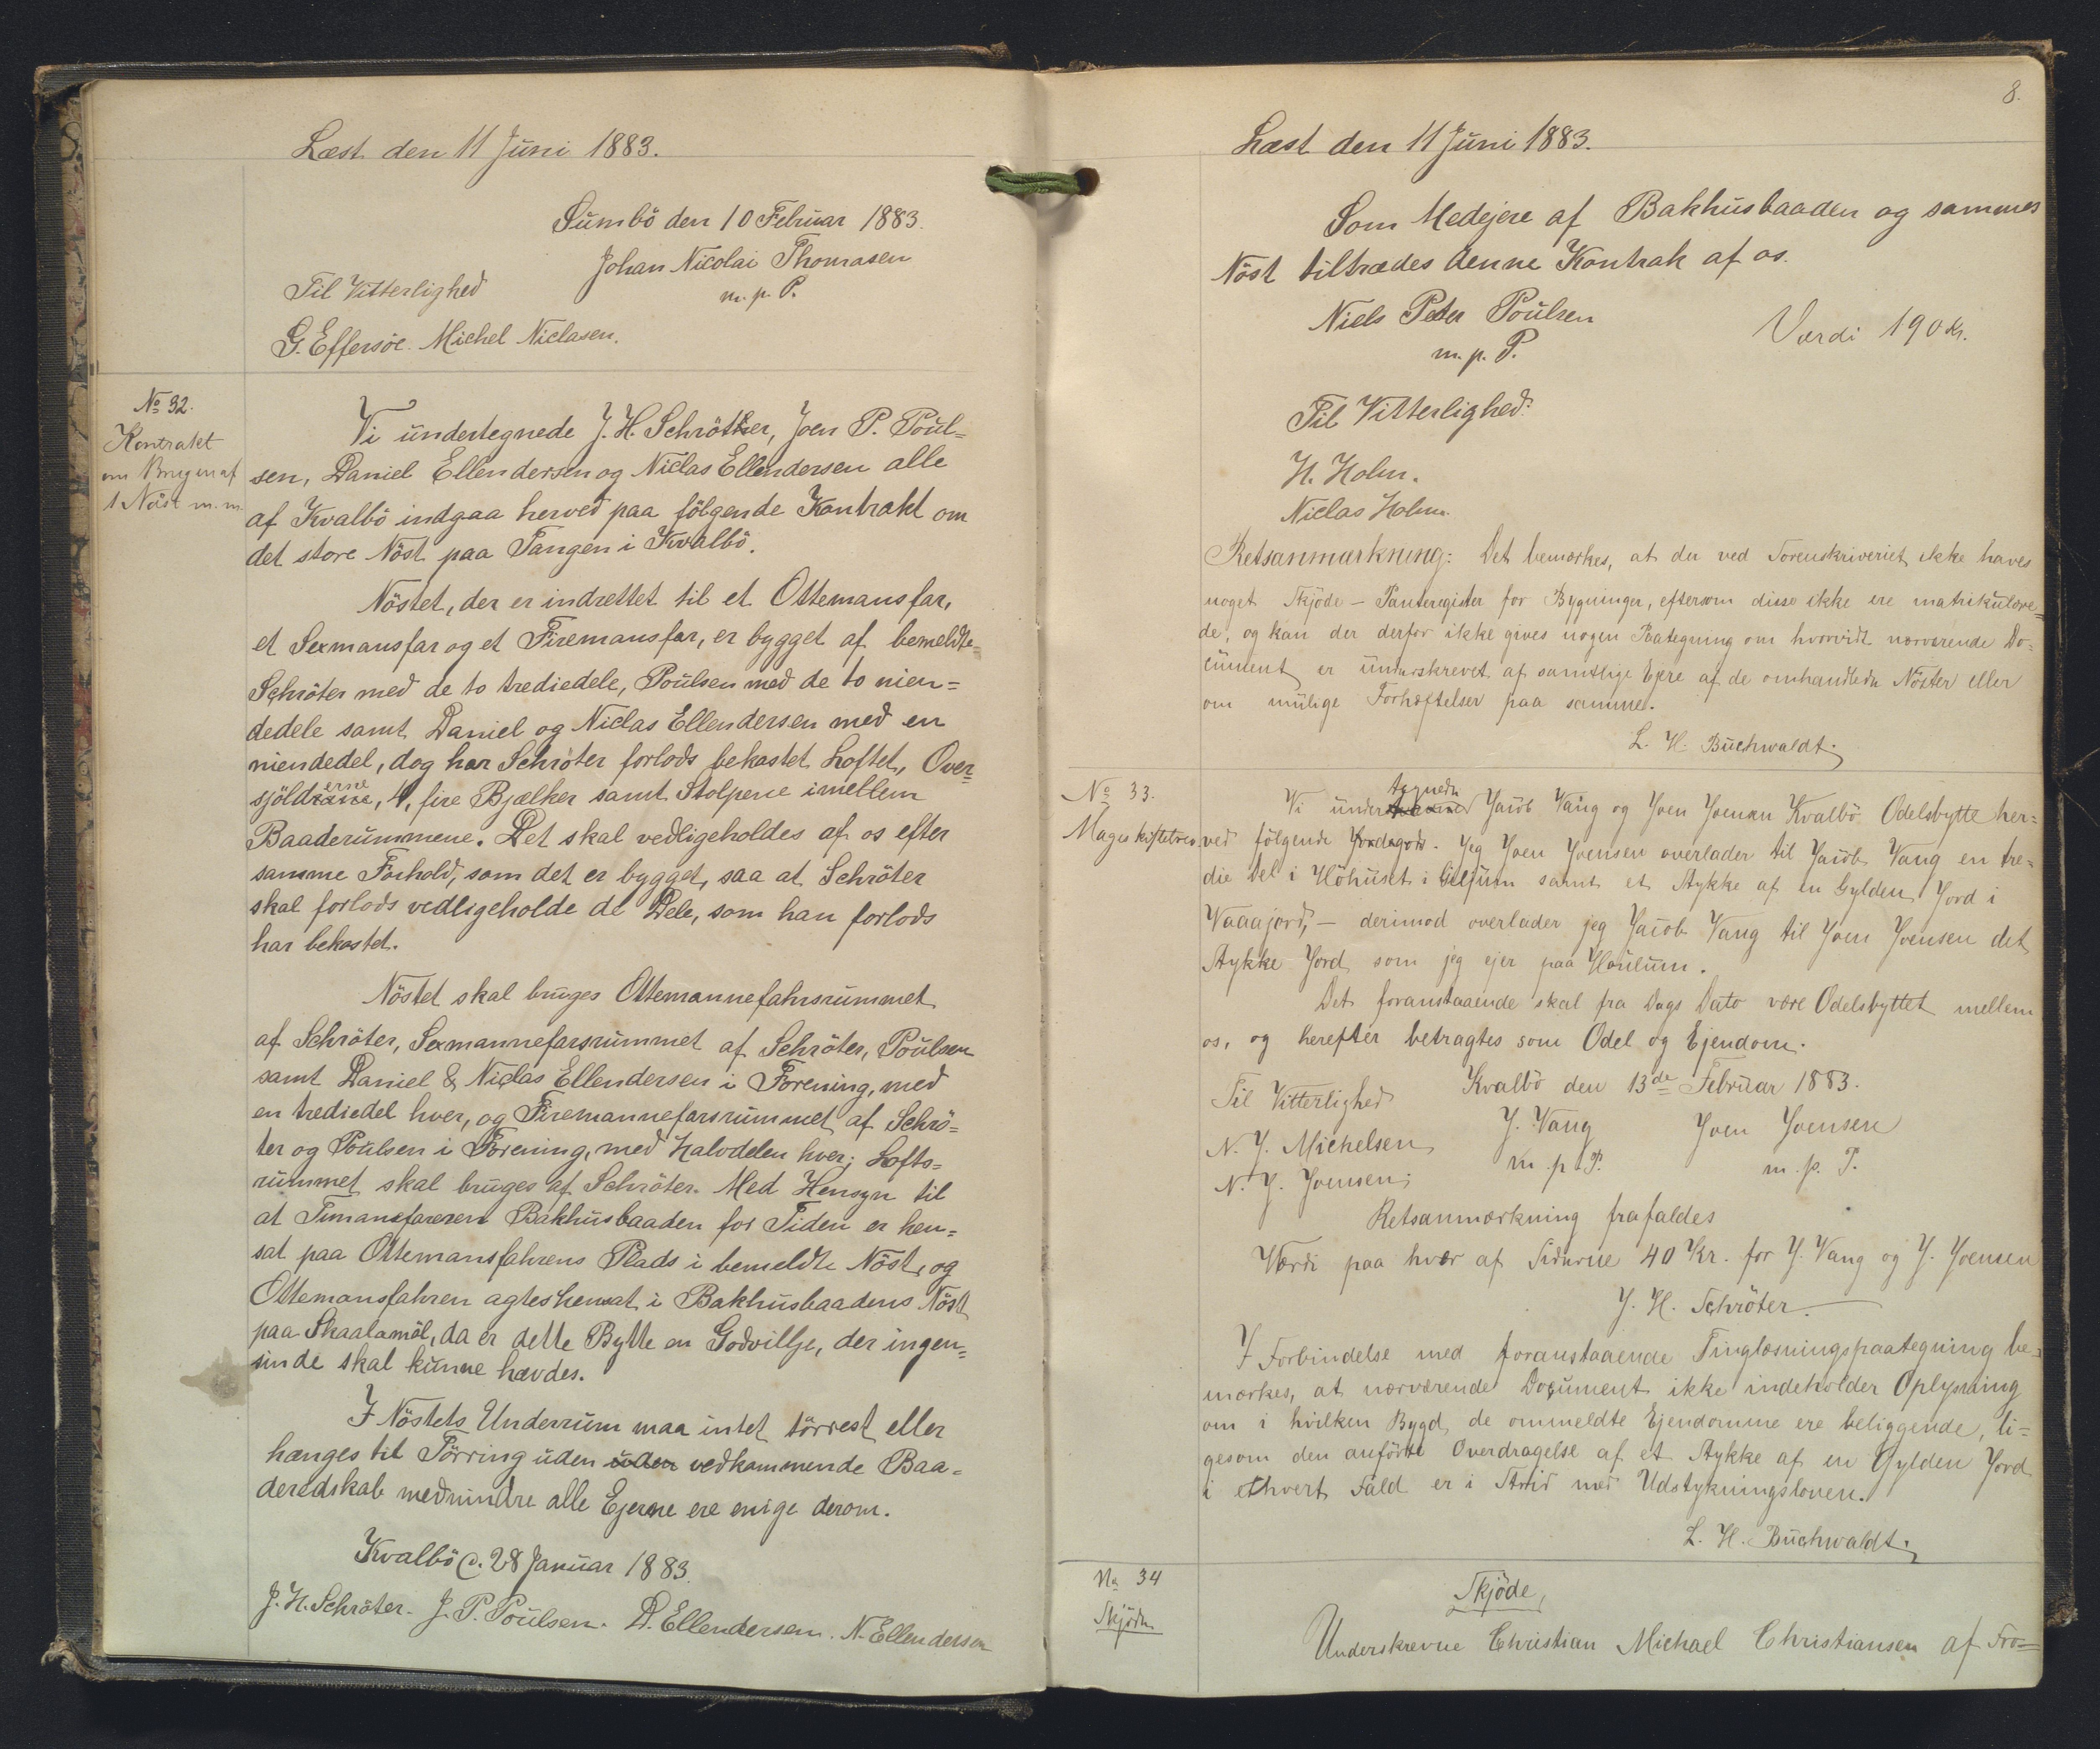 Læst den 11 Juni 1883.
Sumbö den 10 Februar 1883.
Johan Nicolai Thomasen
Til Vitterlighed
m. p. P.
G. Effersöe. Michel Niclasen.
No 32.
Kontrakt
om Brugen af
1 Nöst m.m.
Vi undertegnede J. H. Schröter, Joen P. Poul=
sen, Daniel Ellendersen og Niclas Ellendersen alle
af Kvalbö indgaa herved paa fölgende Kontrakt om
det store Nöst paa Tangen i Kvalbö.
Nöstet, der er indrettet til et Ottemansfar,
et Sexmansfar og et Firemansfar, er bygget af bemeldte
Schröter med de to trediedele, Poulsen med de to nien=
dedele samt Daniel og Niclas Ellendersen med en
niendedel, dog har Schröter forlods bekostet Loftet, Over=
sjöldrerne, 4, fire Bjælker samt Stolpene imellem
Baaderummene. Det skal vedligeholdes af os efter
samme Forhold, som det er bygget, saa at Schröter
skal forlods vedligeholde de Dele, som han forlods
har bekostet.
Nöstet skal bruges Ottemannefahrsrummet
af Schröter, Sexmannefarsrummet af Schröter, Poulsen
samt Daniel & Niclas Ellendersen i Forening, med
en trediedel hver, og Firemannefarsrummet af Schrö=
ter og Poulsen i Forening, med Halvdelen hver; Lofts=
rummet skal bruges af Schröter. Med Hensyn til
at Timansfareren Bakhusbaaden for Tiden er hen=
sat paa Ottemansfahrens Plads i bemeldte Nöst, og
Ottemansfahren agtes hensat i Bakhusbaadens Nöst
paa Skaalamöl, da er dette Bytte en Godvillje, der ingen=
sinde skal kunne hævdes.
I Nöstets Underrum maa intet törrest eller
hænges til Törring uden uden vedkommende Baa=
deredskab medmindre alle Ejerne ere enige derom.
Kvalbö c. 28 Januar 1883.
J. H. Schröter. J. P. Poulsen. D. Ellendersen. N. Ellendersen
8.
Læst den 11 Juni 1883.
Som Medejere af Bakhusbaaden og sammes
Nöst tiltrædes denne Kontrak af os.
Niels Peter Poulsen
m. p. P.
Værdi 190 Kr.
Til Vitterlighed:
H. Holm.
Niclas Holm.
Retsanmærkning: Det bemærkes, at der ved Sorenskriveriet ikke haves
noget Skjöde – Panteregister for Bygninger, eftersom disse ikke ere matrikulere=
de, og kan der derfor ikke gives nogen Paategning om hvorvidt nærværende Do=
cument er underskrevet af samtlige Ejere af de omhandlede Nöster eller
om mulige Forhæftelser paa samme.
L. H. Buchwaldt.
No 33.
Mageskiftebrev.
Vi undertegnede Jacob Vang og Joen Joensen Kvalbö Odelsbytte her=
ved fölgende Jordegods. Jeg Joen Joensen overlader til Jacob Vang en tre=
die Del i Höhuset i Giljum samt et Stykke af en Gylden Jord i
Vaaajord, – derimod overlader jeg Jacob Vang til Joen Joensen det
Stykke Jord som jeg ejer paa Houlum.
Det foranstaaende skal fra Dags Dato være Odelsbyttet mellem
os, og herefter betragtes som Odel og Ejendom.
Kvalbö den 13de Februar 1883.
Til Vitterlighed
J. Vang
Joen Joensen
N. J. Michelsen
m. p. P.
m. p. P.
N. J. Joensen;
Retsanmærkning frafaldes
Værdi paa hver af Siderne 40 Kr. for J. Vang og J. Joensen
J. H. Schröter.
I Forbindelse med foranstaaende Tinglæsningspaategning be=
mærkes, at nærværende Document ikke indeholder Oplysning
om i hvilken Bygd de ommeldte Ejendomme ere beliggende, li=
gesom den anförte Overdragelse af et Stykke af en Gylden Jord
i ethvert Fald er i Strid med Udstykningsloven.
L. H. Buchwaldt.
No 34
Skjöde
Skjöde,
Underskrevne Christian Michael Christiansen af Fro=